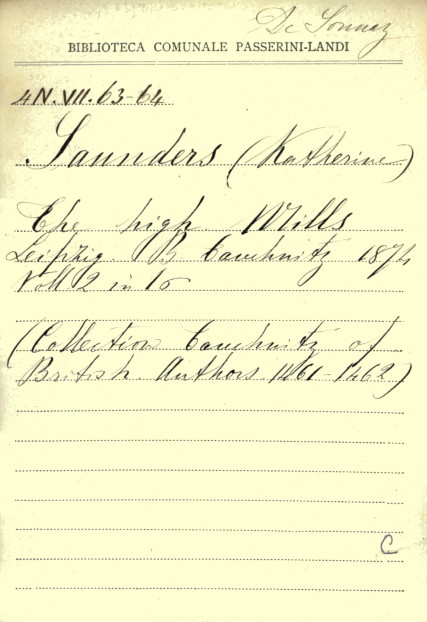 De Sonnaz
BIBLIOTECA COMUNALE PASSERINI-LANDI
4N.VII.63-64
Saunders (Katherine)
The high Mills
Leipzig. B Tauchnitz 1874
Voll 2 in 16
(Collection Tauchnitz of
British Authors 1461-1462)
C